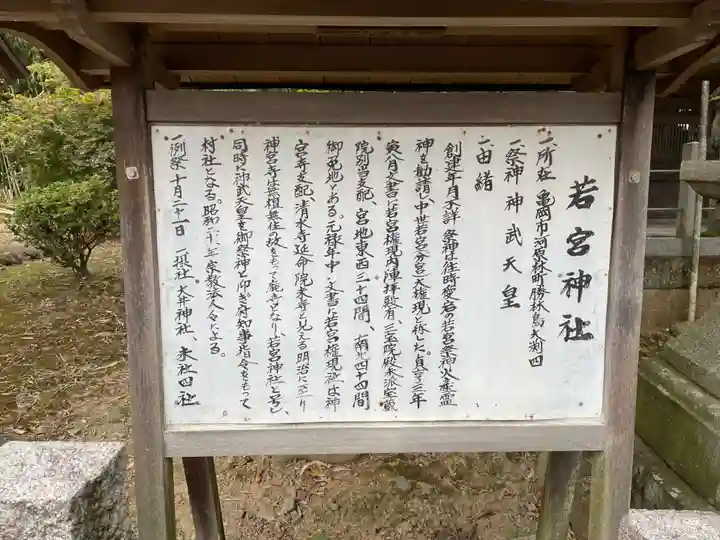 若宮神社
一、所社 亀岡市河原林町勝林島大渕四
一、祭神 神武天皇
一、由緒
創建年月不詳 祭神は往時愛宕若宮祭神火産霊
神を勧請、中世若宮(分宮)大権現と称した。貞享三年
寅八月文書に若宮権現内陣拝殿有、三宝院殿末派宝蔵
院別当支配、宮地東西三十四間、南北四十四間
御免地とある。元禄年中の文書に若宮権現社は神
宮寺支配、清水寺延命院末寺と見える明治に至り
神宮寺は無檀無住の故をもって廃寺となり、若宮神社と号し、
同時に神武天皇を御祭神と仰ぎ府知事指令をもって
村社となる。昭和二十八年宗教法人令による。
一、例祭 十月二十一日 一、摂社 大井神社、末社四社